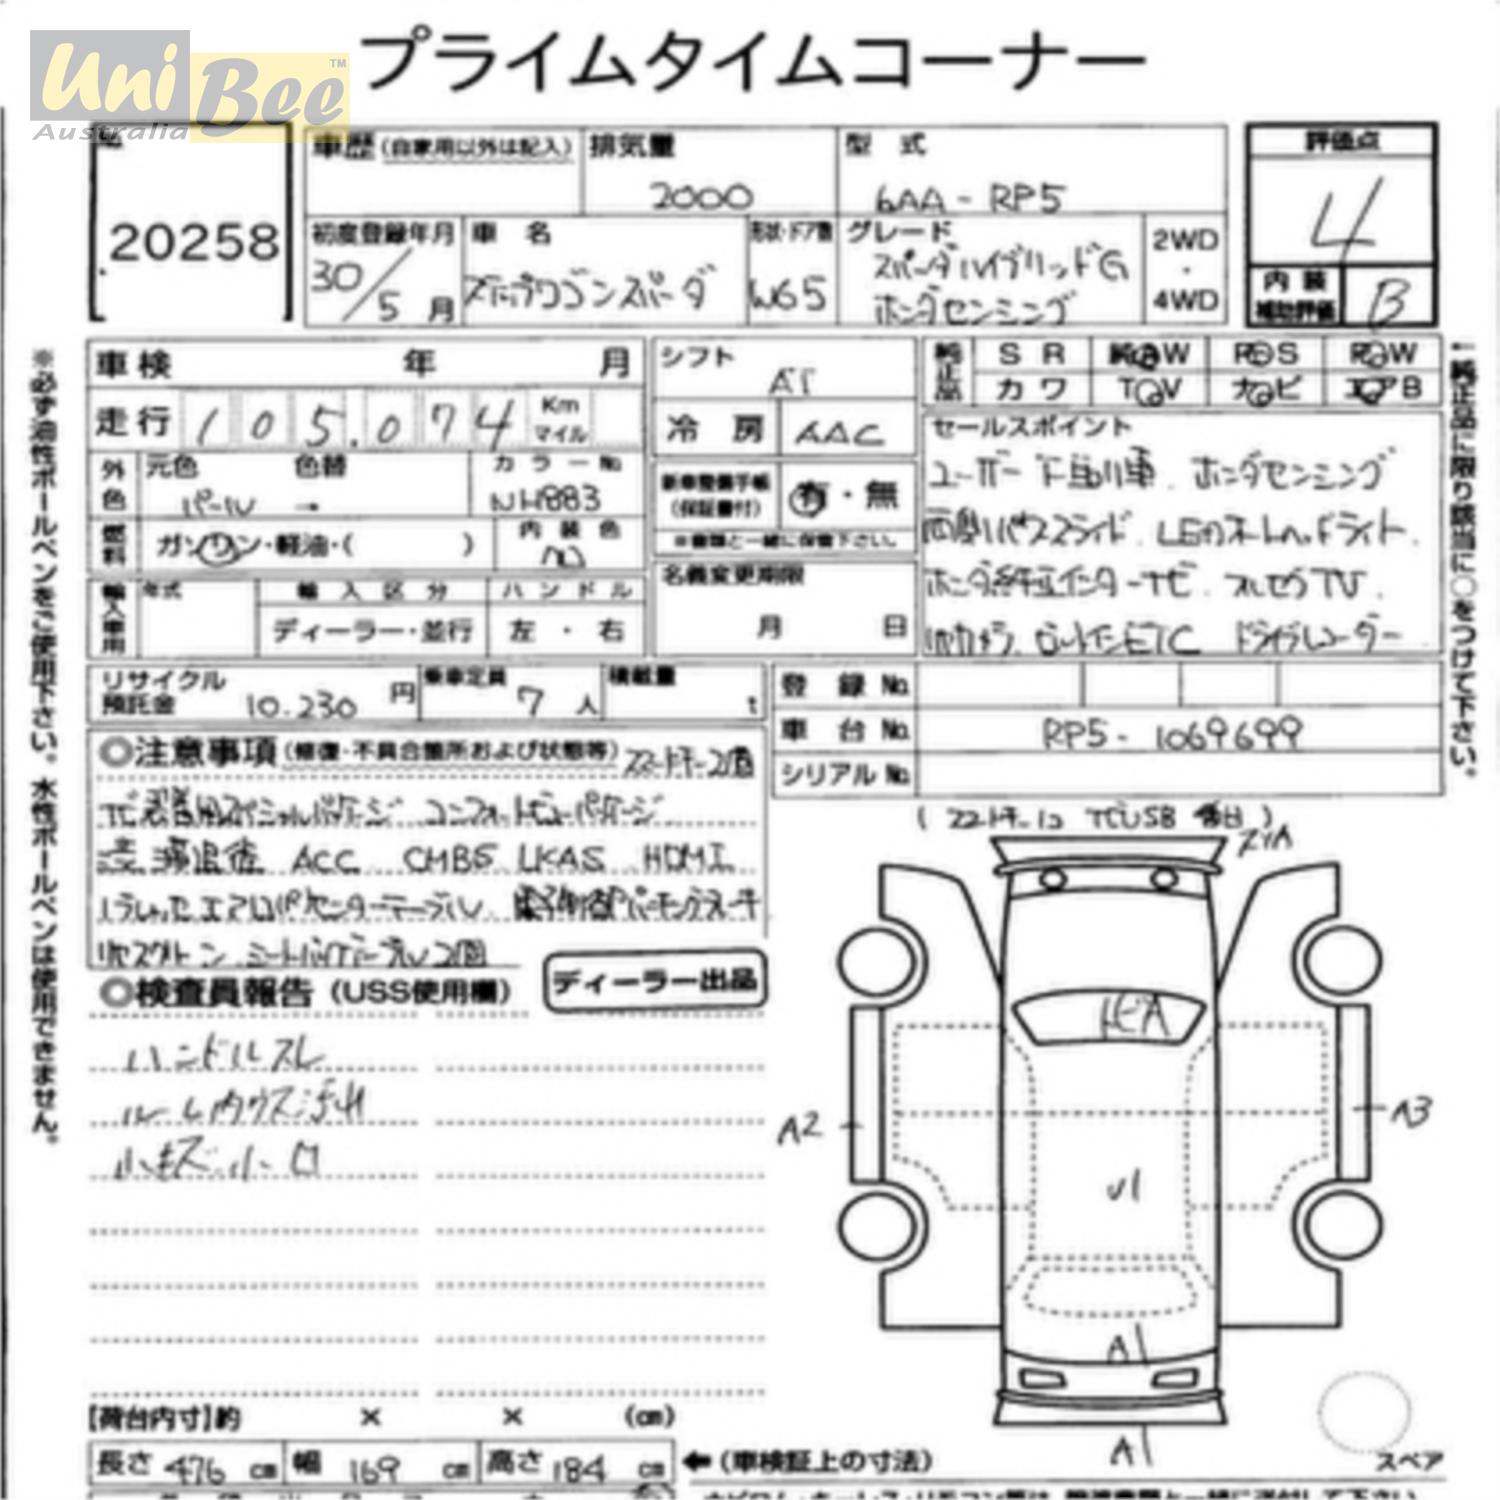 プライムタイムコーナー
Uni Bee™
Australia
20258
車歴(自家用以外は記入) 排気量 2000 型式 6AA-RP5
評価点 4
内装補助評価 B
初度登録年月 30/5月 車名 ステップワゴンスパーダ 形状・ドア数 W65 グレード スパーダハイブリッドG ホンダセンシング 2WD・4WD
車検 年 月
走行 105,074 Km マイル
外色 元色 パール → 色替 カラーNo NH883
燃料 ガソリン・軽油・( ) 内装色
輸入車用 年式 輸入区分 ディーラー・並行 ハンドル 左・右
シフト AT
冷房 AAC
新車整備手帳(保証書付) 有・無
※書類と一緒に保管下さい。
名義変更期限 月 日
純正品 SR 純AW PS PW
カワ TV ナビ エアB
セールスポイント
ユーザー下取車 ホンダセンシング
両側パワースライド LEDオートヘッドライト
ホンダ純正インターナビ フルセグTV
Rカメラ ビルトインETC ドライブレコーダー
リサイクル預託金 10,230円 乗車定員 7人 積載量 t
登録No.
車台No. RP5-1069699
シリアルNo.
◎注意事項(修復・不具合箇所および状態等) スマートキー2個
ナビ装着用スペシャルパッケージ コンフォートビューパッケージ
ACC CMBS LKAS HDMI
プラズマクラスター
電子制御パーキングブレーキ
2個
◎検査員報告(USS使用欄) ディーラー出品
ハンドルスレ
ルーム内ウス汚れ
小キズ 小凹
A2
A3
U1
A1
A1
スペア
[荷台内寸]約 × × (cm)
長さ 476 cm 幅 169 cm 高さ 184 cm ←(車検証上の寸法)
※必ず油性ボールペンをご使用下さい。水性ボールペンは使用できません。
純正品に限り該当に○をつけて下さい。